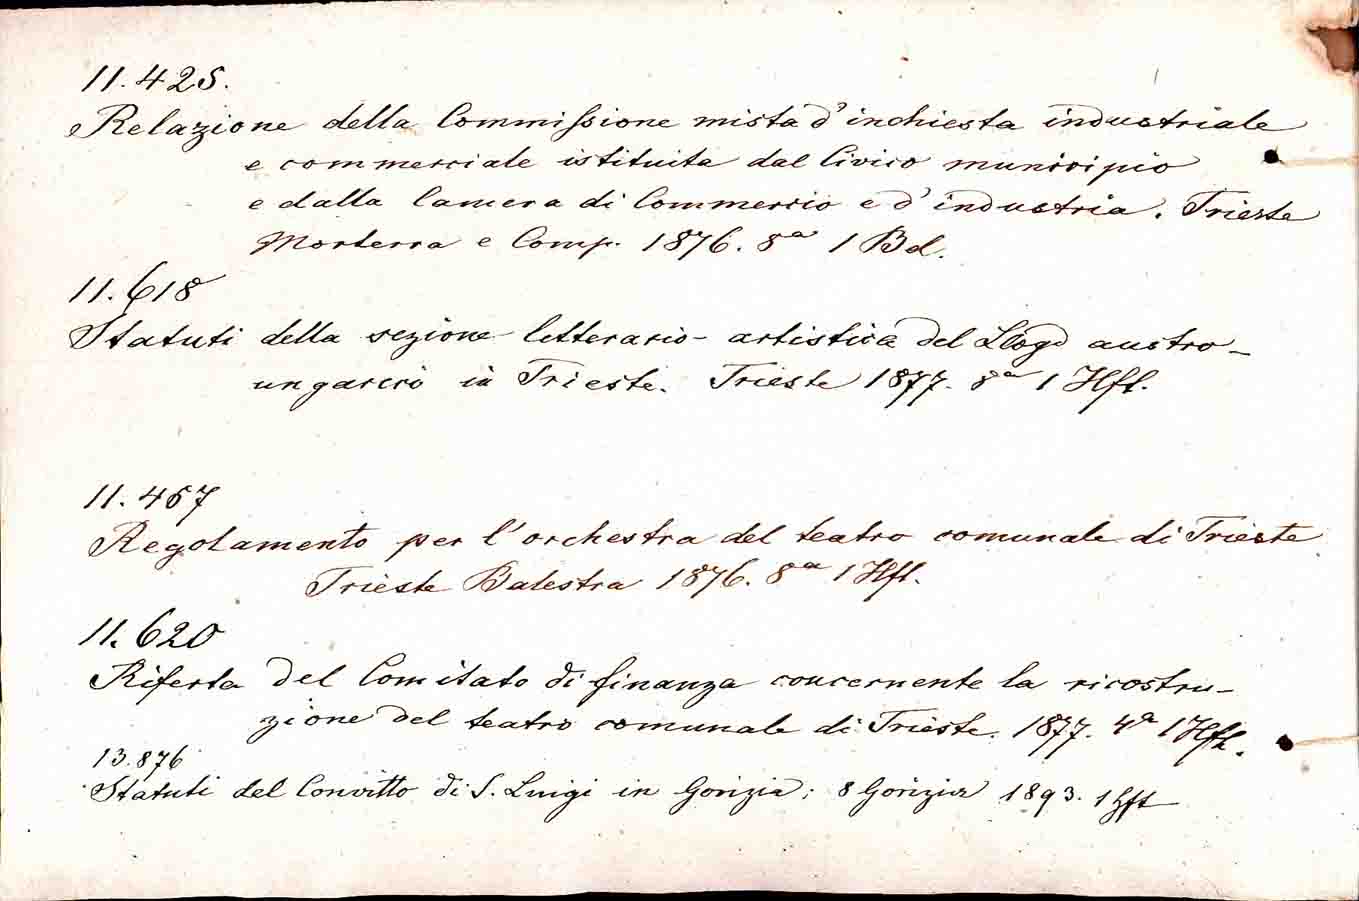 11.425.
Relazione della Commissione mista d'inchiesta industriale
e commerciale istituita dal Civico municipio
e dalla Camera di Commercio e d'industria. Trieste
Morterra e Comp. 1876. 8ᵃ 1 Bd.
11.618
Statuti della sezione letterario-artistica del Lloyd austro-
ungarico in Trieste. Trieste 1877. 8ᵃ 1 Hft.
11.467
Regolamento per l'orchestra del teatro comunale di Trieste
Trieste Balestra 1876. 8ᵃ 1 Hft.
11.620
Riferta del Comitato di finanza concernente la ricostru-
zione del teatro comunale di Trieste. 1877. 4ᵃ 1 Hft.
13.876
Statuti del Convitto di S. Luigi in Gorizia; 8 Gorizia 1893. 1 Hft